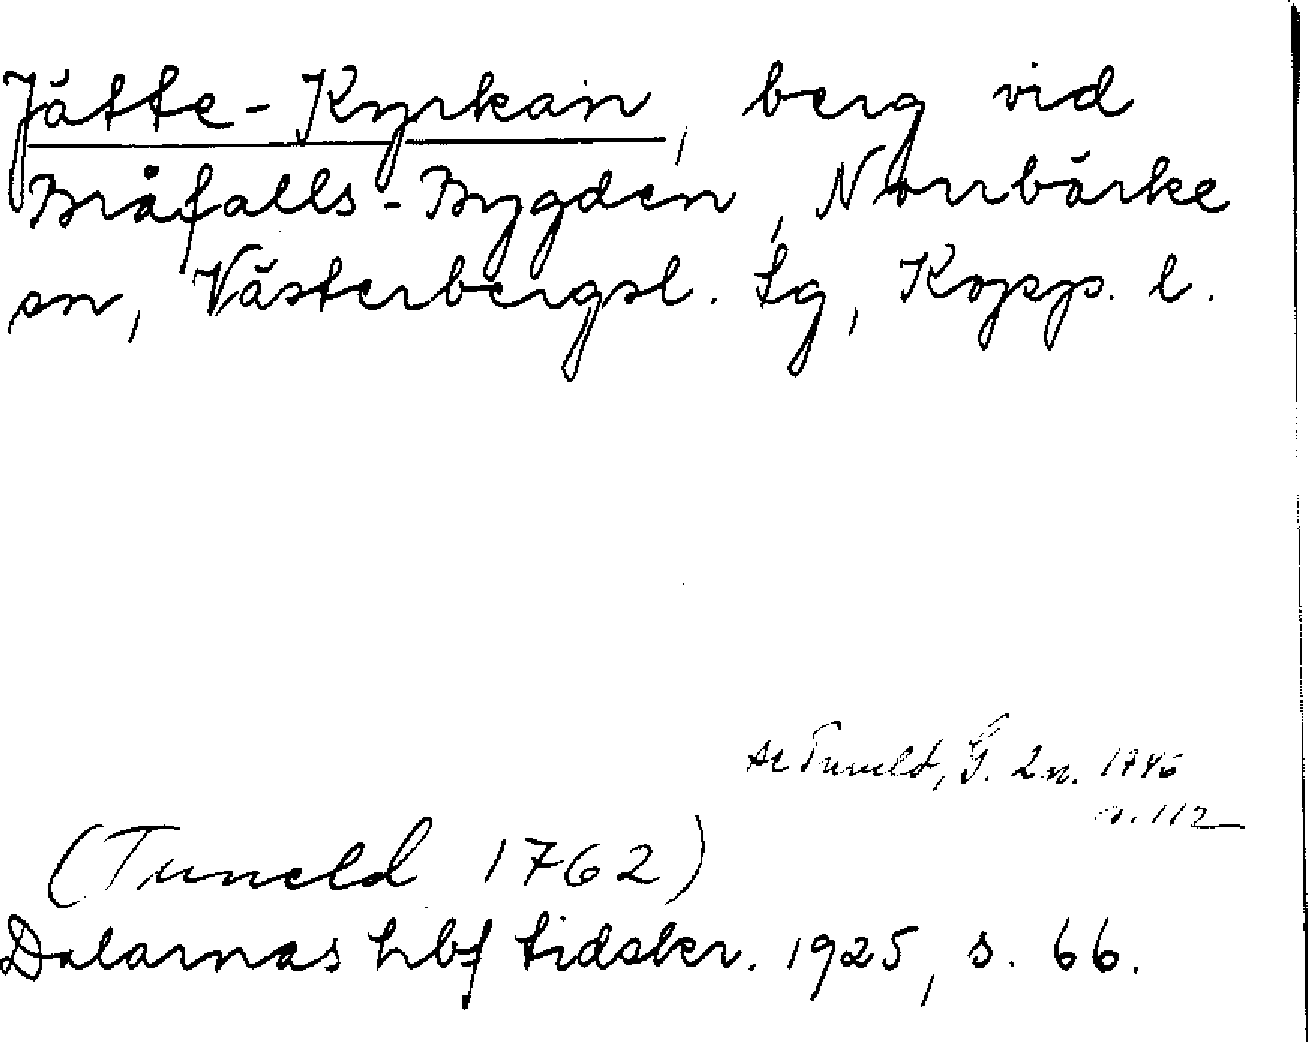 Jätte-Kyrkan, berg vid
Bråfalls-Bygden, Norrbärke
sn, Västerbergsl. tg, Kopp. l.
Tuneld, G.
s. 112
(Tuneld 1762)
Dalarnas hbf tidskr. 1925, s. 66.